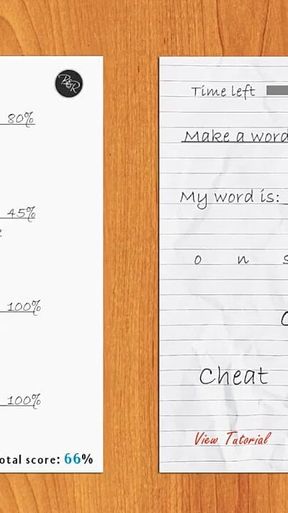 B&R
80%
45%
100%
100%
otal score: 66%
Time left
Make a word
My word is:
o n s
Cheat
View Tutorial